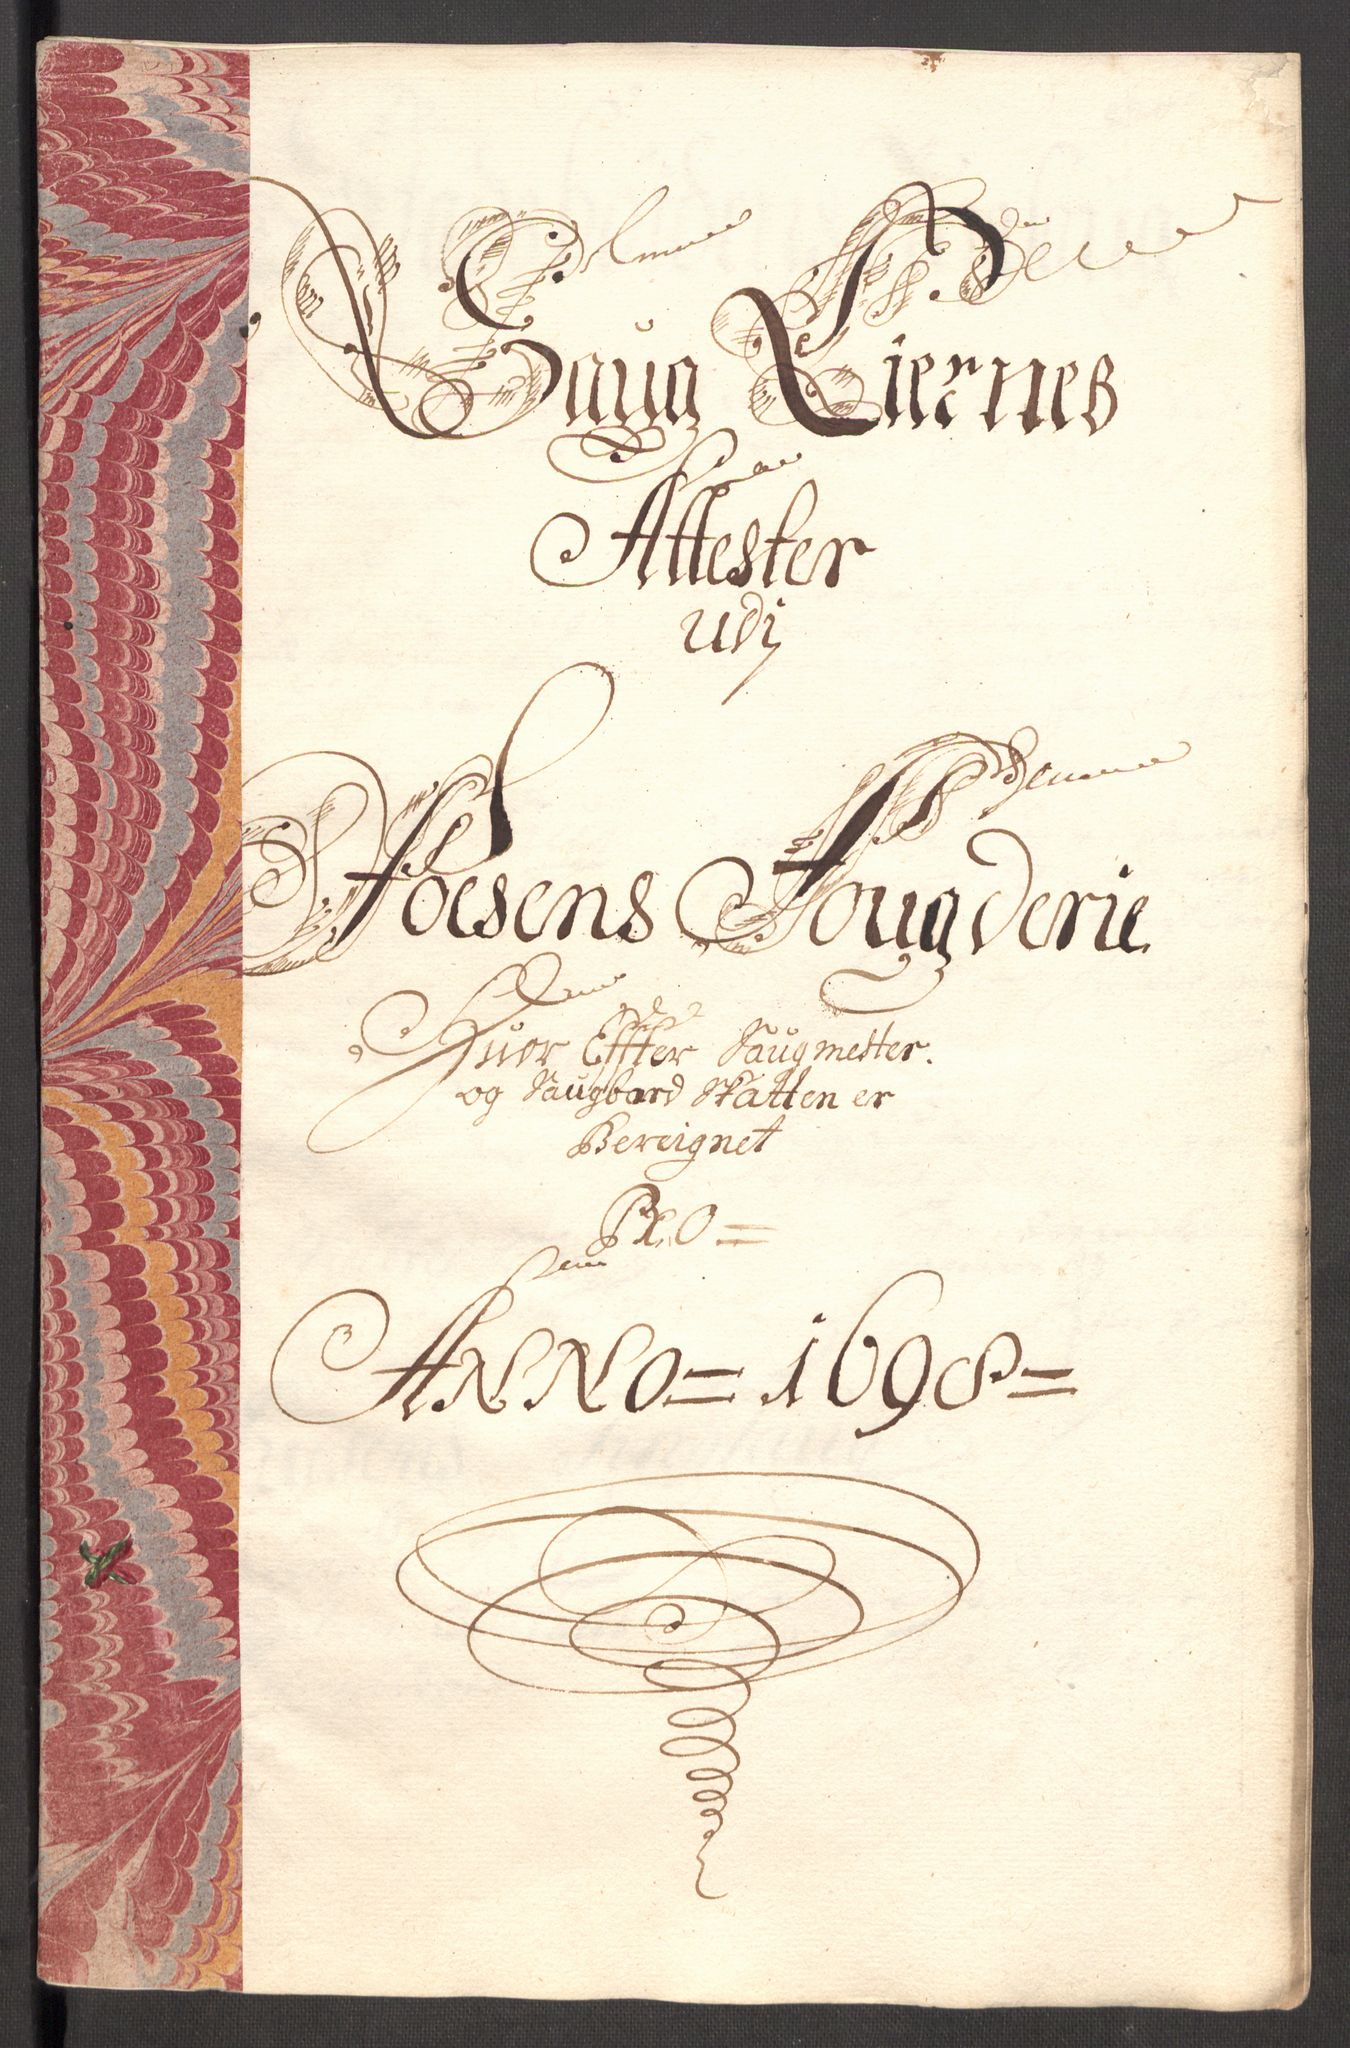 Saug Eiernes
Attester
udj
Foesens Fougderie
Huor Effter Saugmester.
og Saugbord Skatten er
Bereignet
Pro =
ANNO = 1698 =